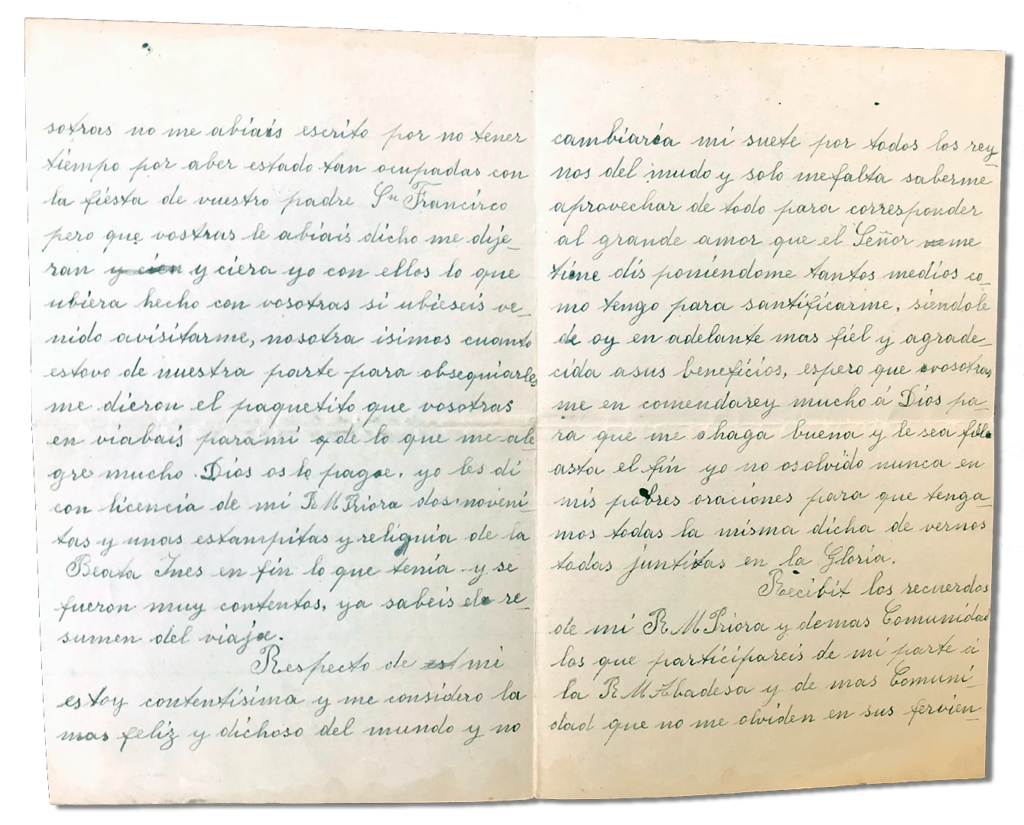 sotras no me abiais escrito por no tener
tiempo por aber estado tan ocupadas con
la fiesta de vuestro padre Sn Francirco
pero que vostras le abiais dicho me dije-
ran y cien y ciera yo con ellos lo que
ubiera hecho con vosotras si ubieseis ve-
nido avisitarme, nosotra isimos cuanto
estovo de nuestra parte para obsequiarles
me dieron el paquetito que vosotras
en viabais parami y de lo que me ale
gre mucho. Dios os lo pague, yo les di
con licencia de mi R M Priora dos noveni-
tas y unas estampitas y reliquia de la
Beata Ines en fin lo que tenia y se
fueron muy contentos, ya sabeis ele re-
sumen del viaje.
Respecto de est mi
estoy contentisima y me considero la
mas feliz y dichoso del mundo y no
cambiaria mi suete por todos los rey-
nos del mudo y solo mefalta saberme
aprovechar de todo para corresponder
al grande amor que el Señor me
tiene dis poniéndome tantos medios co-
mo tengo para santificarme, siendole
de oy en adelante mas fiel y agrade-
cida asus beneficios, espero que vosotras
me en comendarey mucho á Dios pa-
ra que me haga buena y le sea fiel
asta el fin yo no osolvido nunca en
mis pobres oraciones para que tenga-
mos todas la misma dicha de vernos
todas juntitas en la Gloria.
Recibit los recuerdos
de mi R M Priora y demas Comunidad
los que participareis de mi parte á
la R M Abadesa y de mas Comuni-
dad que no me olviden en sus fervien-